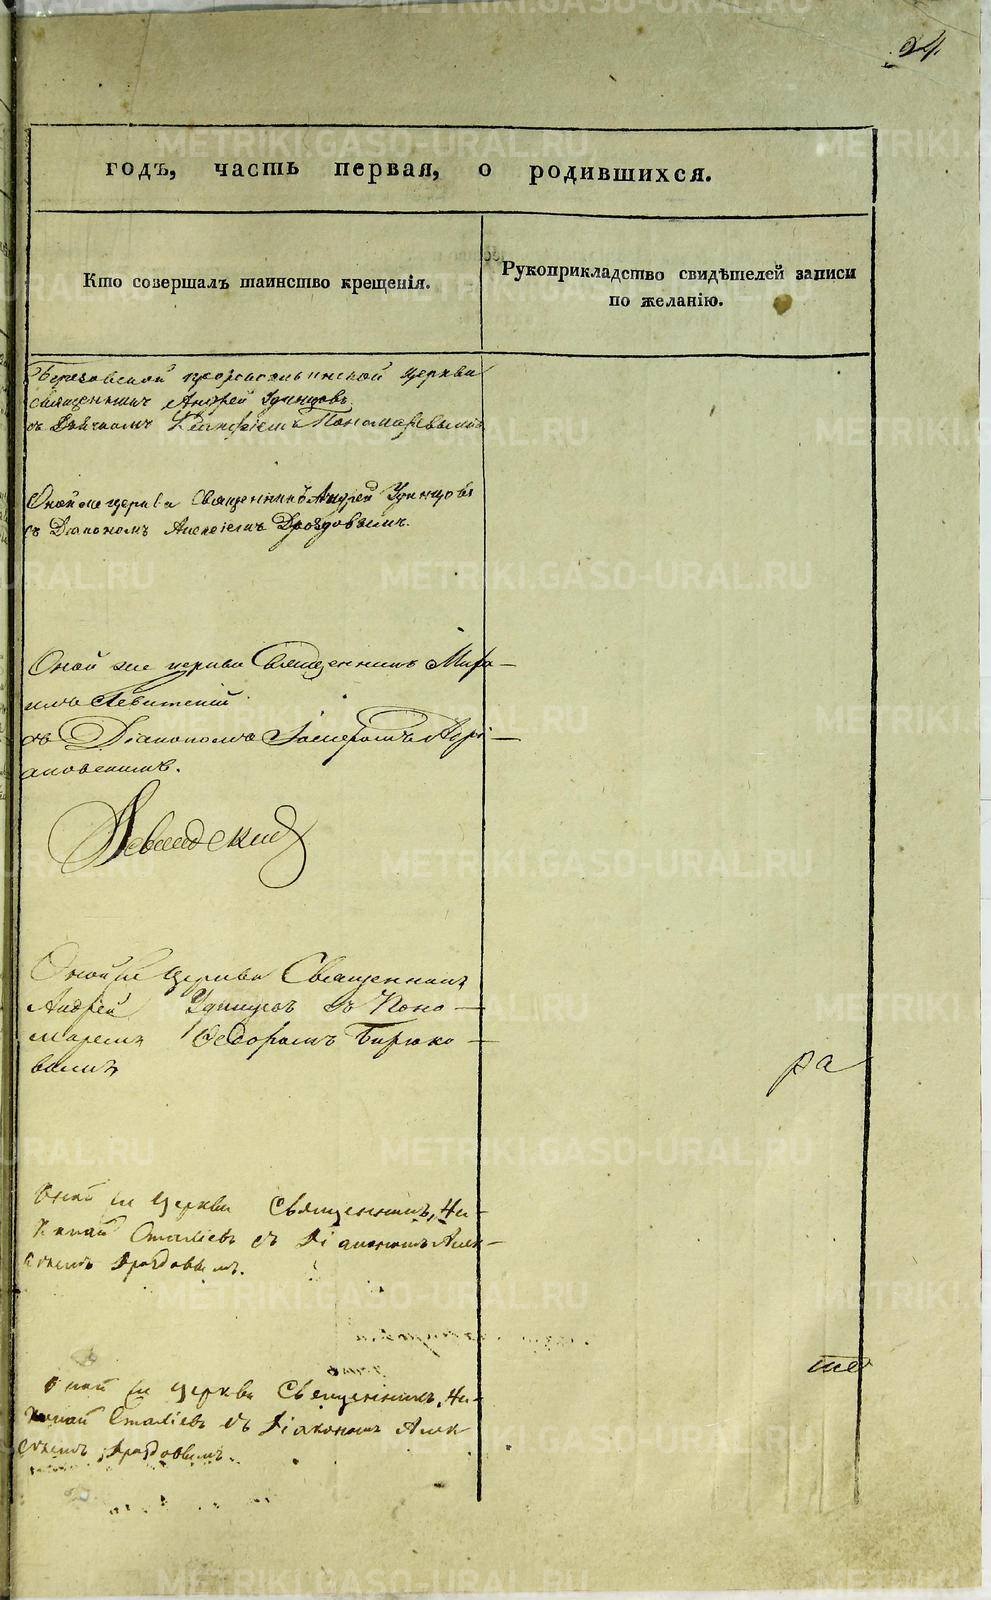 24.
годъ, часть первая, о родившихся.
Кто совершалъ таинство крещенія.
Рукоприкладство свидѣтелей записи
по желанію.
Березовской церкви
священникъ Андрей Удинцовъ
съ Пономаревымъ
Оной же церкви Священникъ Андрей Удинцовъ
съ Діакономъ Алексіемъ Дроздовымъ.
Оной же церкви Священникъ
Левитскій
съ Діакономъ
ановскимъ.
Оной же Церкви Священникъ
Андрей Удинцовъ съ Поно-
маремъ Ѳедоромъ Бирюко-
вымъ
ра
Оной же Церкви Священникъ, Ни-
колай съ Діакономъ Алек-
сѣемъ Дроздовымъ.
то
Оной же Церкви Священникъ, Ни-
колай съ Діакономъ Алек
сѣемъ Дроздовымъ.
METRIKI.GASO-URAL.RU